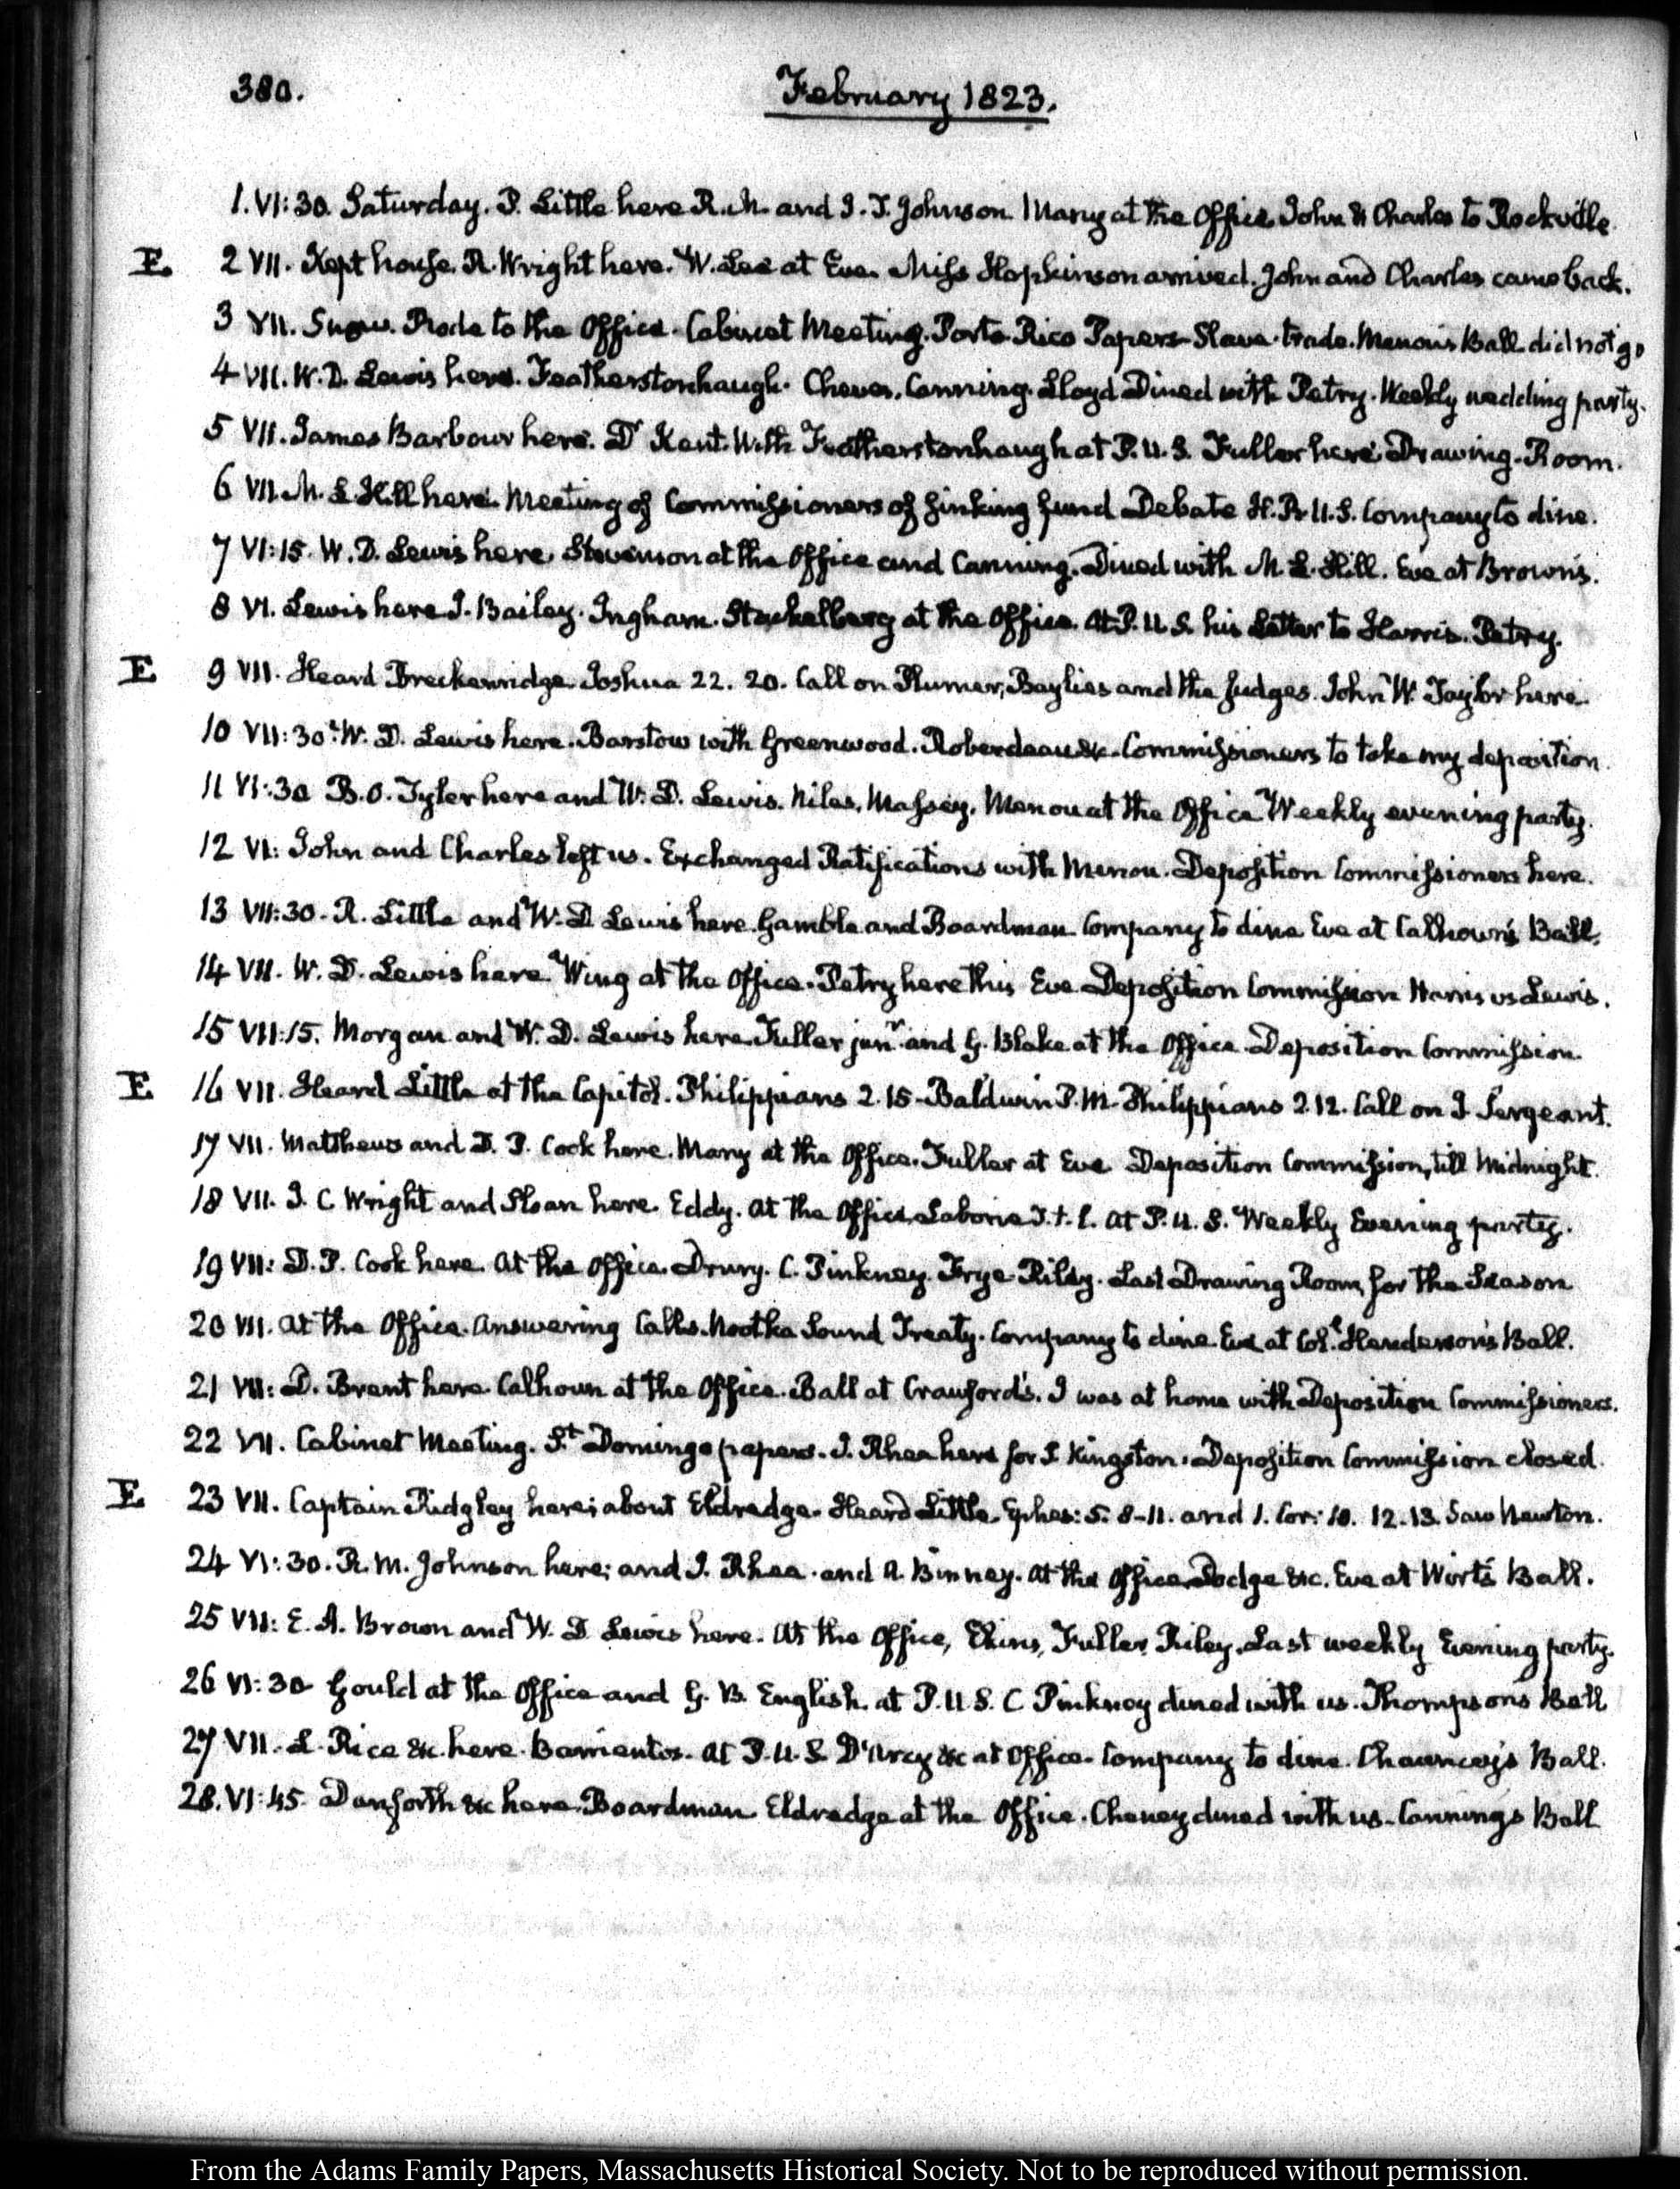 380.
February 1823.
1. VI:30. Saturday. P. Little here R. M. and J. T. Johnson Many at the Office John & Charles to Rockville.
E. 2 VII. Kept house. R. Wright here. W. Lee at Eve. Miss Hopkinson arrived. John and Charles came back.
3 VII. Snow. Rode to the Office. Cabinet Meeting. Porto Rico Papers Slave-trade. Menou's Ball did not go
4 VII. W. D. Lewis here. Featherstonhaugh. Cheves. Canning. Lloyd Dined with Petry. Weekly wedding party.
5 VII. James Barbour here. Dr Kent. With Featherstonhaugh at P. U. S. Fuller here. Drawing-Room.
6 VII. M. L. Hill here. Meeting of Commissioners of sinking fund Debate H. R. U. S. Company to dine.
7 VI:15. W. D. Lewis here. Stevenson at the Office and Canning. Dined with M. L. Hill. Eve at Brown's.
8 VI. Lewis here J. Bailey. Ingham. Stackelberg at the Office. At P. U. S. his Letter to Harris. Petry.
E 9 VII. Heard Breckenridge Joshua 22. 20. Call on Plumer, Baylies and the Judges. John W. Taylor here.
10 VII:30. W. D. Lewis here. Barstow with Greenwood. Roberdeau &c. Commissioners to take my deposition.
11 VI:30 B. O. Tyler here and W. D. Lewis. Niles, Massey, Menou at the Office Weekly evening party.
12 VI: John and Charles left us. Exchanged Ratifications with Menou. Deposition Commissioners here.
13 VII:30. R. Little and W. D Lewis here. Gamble and Boardman Company to dine Eve at Calhoun's Ball.
14 VII. W. D. Lewis here Wing at the Office. Petry here this Eve Deposition Commission Harris vs Lewis.
15 VII:15. Morgan and W. D. Lewis here Fuller junr. and G. Blake at the Office Deposition Commission.
E 16 VII. Heard Little at the Capitol. Philippians 2.15. Baldwin P. M. Philippians 2.12. Call on J. Sergeant.
17 VII. Matthews and D. P. Cook here. Many at the Office. Fuller at Eve Deposition Commission, till Midnight.
18 VII. J. C. Wright and Sloan here. Eddy. At the Office Laborie at P. U. S. Weekly Evening party.
19 VII: D. P. Cook here. At the Office Drury. C. Pinkney. Frye Riley. Last Drawing Room for the Season
20 VII. At the Office. Answering Calls. Nootka Sound Treaty. Company to dine Eve at Col. Henderson's Ball.
21 VII: D. Brent here. Calhoun at the Office. Ball at Crawford's. I was at home with Deposition Commissioners.
22 VII. Cabinet Meeting. St Domingo papers. J. Rhea here for S Kingston. Deposition Commission closed.
E. 23 VII. Captain Ridgley here; about Eldredge. Heard Little. Ephes: 5. 8-11. and 1. Cor: 10. 12.13. Saw Newton.
24 VI:30. R. M. Johnson here; and J. Rhea. and A. Binney. At the Office Dodge &c. Eve at Wirt's Ball.
25 VII: E. A. Brown and W. D Lewis here. At the Office, Ekins, Fuller, Riley. Last weekly Evening party.
26 VI:30 Gould at the Office and G. B. English. at P. U. S. C Pinkney dined with us. Thompson's Ball
27 VII. L. Rice &c. here. Barrientos. At P. U. S D'Arcy &c at Office. Company to dine. Chauncey's Ball.
28. VI:45 Danforth &c here. Boardman Eldredge at the Office. Cheney dined with us. Canning's Ball
From the Adams Family Papers, Massachusetts Historical Society. Not to be reproduced without permission.